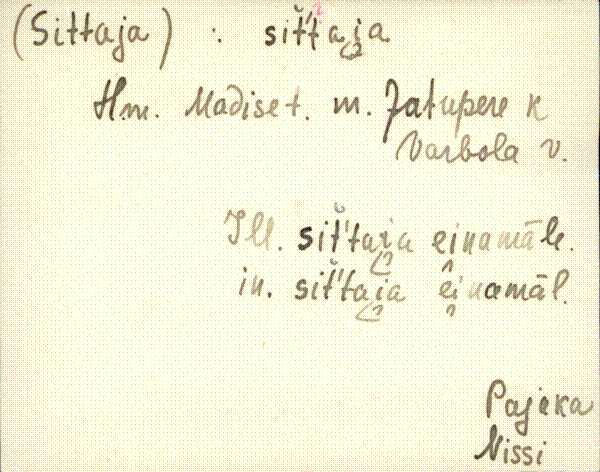 (Sittaja) : sit't'ai̯a
Hm. Madise t. m. Jatupere k
Varbola v.
Ill. sit't'ai̯a einamäle.
in. sit't'ai̯a ei̯namäl.
Pajaka
Nissi